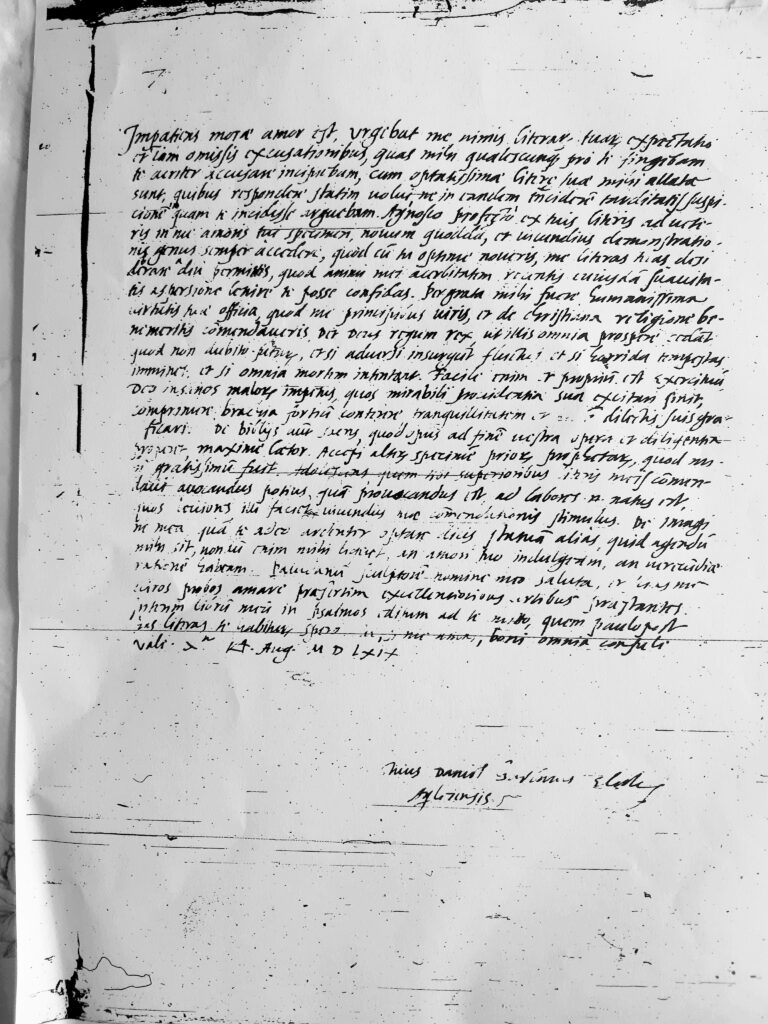 Impatiens moræ amor est, Urgebat me nimis literar tuar expectatio
et iam omissis excusationibus, quas mihi qualescunq pro te fingebam
te acriter accusare incipiebam, cum optatissimæ literæ tuæ mihi allatæ
sunt, quibus respondere statim volui, ne in eandem inciderem tarditatis suspi
cionē quam te incidisse arguebam. Agnosco profecto ex tuis literis ad vete
ris in me amoris tui specimen, novum quoddā, et iucundius demonstratio
nis genus semper accedere, quod cū tu optime noveris, me literas tuas desi
derare diu permittis, quod animi mei acerbitatem recentis cuiusdā suavita
tis aspersione lenire te posse confidas. Pergrata mihi fuere humanissima
virtutis tuæ officia, quod me principibus viris, et de christiana religione be-
nemeritis comendaveris. Det Deus regum rex ut illis omnia prospere cedāt
quod non dubito et si adversi insurgūt fluctus et si horrida tempestas
imminet, et si omnia mortem intentant. Facile enim et propriū est Exercituū
Deo insanos maloR impetus, quos mirabili providentia sua excitari sinit,
comprimere, bracchia fortiū conterere tranquillitatem et dilectis suis gra-
tificari. De bibliis aūt sacris, quod opus ad finē vestra opera et diligentia
properet maxime lætor. Accepi alterR specimen prioR prospectaR, quod mi-
hi gratissimū fuit. Adolescens quem tibi superioribus literis meis comen-
davi avocandus potius, quā provocandus est, ad labores n. natus est,
quos leviores illi faciet iucundus tuæ comendationis stimulus. De imagi
ne mea quā te adeo ardenter optare dicis statuā alias, quid agendū
mihi sit, non enim mihi liquet, an amori tuo indulgeam, an verecundiæ
rationē habeam. sculptorē nomine meo saluta, et
viros probos amare præsertim excellentioribus artibus præstantes.
librū meū in psalmos editum ad te mitto, quem paulo post
has literas te habiturR spero me ama, boni omnia consule
Vale. X Kl. Aug. M D LXIX
tuus Daniel